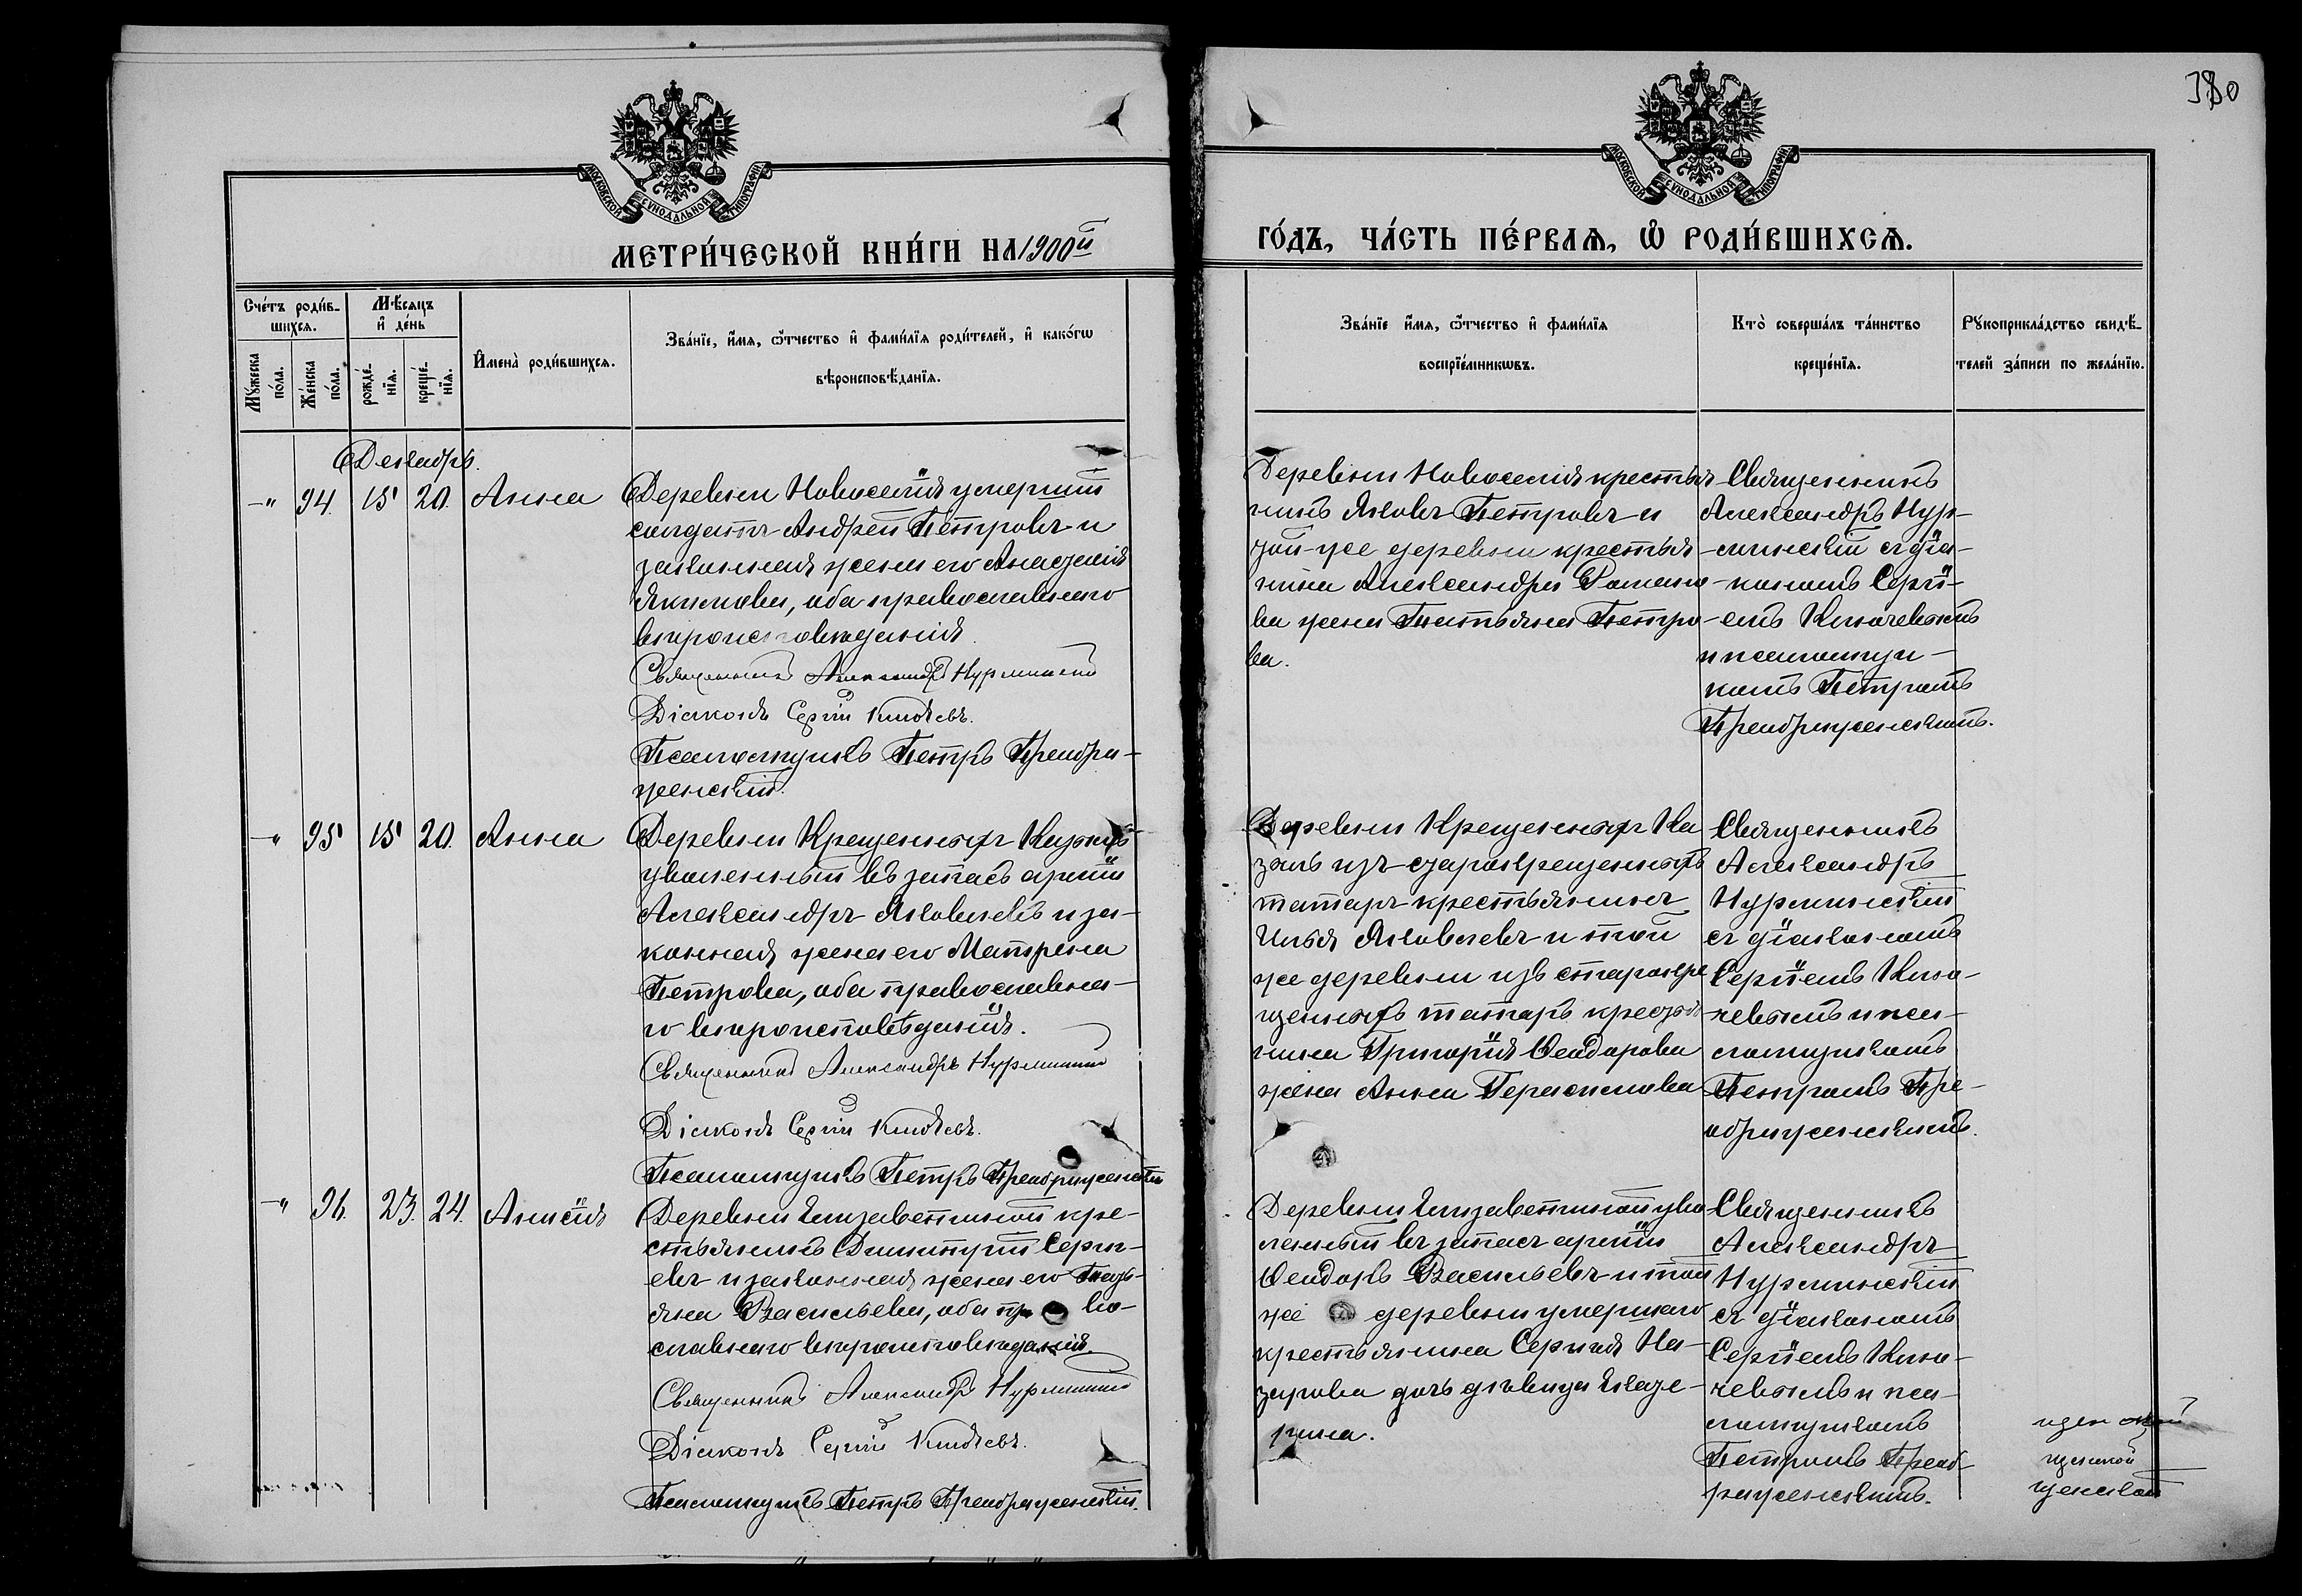 380
МОСКОВСКОЙ СѴНОДАЛЬНОЙ ТИПОГРАФІИ
МОСКОВСКОЙ СѴНОДАЛЬНОЙ ТИПОГРАФІИ
МЕТРИ́ЧЕСКОЙ КНИ́ГИ НА 1900й
ГО́ДЪ, ЧА́СТЬ ПЕ́РВАѦ, Ѡ РОДИ́ВШИХСѦ.
Счетъ роди́в-
шихсѧ.
Мꙋжеска
по́ла.
Же́нска
по́ла.
Мѣсѧцъ
и де́нь
рожде́-
нїѧ.
креще́-
нїѧ.
Имена̀ роди́вшихсѧ.
Зва́нїе, и́мѧ, ѻ҆́тчество и҆ фами́лїѧ роди́телей, и҆ како́гѡ
вѣроисповѣ́данїѧ.
Зва́нїе и́мѧ, ѻ҆́тчество и҆ фами́лїѧ
воспрїе́мникѡвъ.
Кто̀ соверша́лъ та́инство
креще́нїѧ.
Рꙋкоприкла́дство свидѣ́-
телей за́писи по жела́нїю.
Декабрь.
-"- 94. 15 20. Анна
Деревни Новоселія умершій
солдатъ Андрей Петровъ и
законная жена его
Якимова, оба православнаго
вѣроисповѣданія.
Священникъ Александръ Нурминскій
Діаконъ Сергій Ключевъ.
Псаломщикъ Петръ Преобра-
женскій.
Деревни Новоселія крестья-
нинъ Яковъ Петровъ и
той-же деревни крестья-
нина Александра Романо-
ва жена Татьяна Петро-
ва.
Священникъ
Александръ Нур-
минскій съ діа-
кономъ Сергі-
емъ Ключевымъ
и псаломщи-
комъ Петромъ
Преображенскимъ.
-"- 95 15 20. Анна
Деревни Крещенныхъ Казань
уволенный въ запасъ арміи
Александръ Яковлевъ и за-
конная жена его Матрена
Петрова, оба православна-
го вѣроисповѣданія.
Священникъ Александръ Нурминскій
Діаконъ Сергій Ключевъ.
Псаломщикъ Петръ Преображенскій
Деревни Крещенныхъ Ка-
зань изъ старокрещенныхъ
татаръ крестьянинъ
Илья Яковлевъ и той
же деревни изъ старокре
щенныхъ татаръ крестья-
нина Григорія Ѳеодорова
жена Анна Герасимова
Священникъ
Александръ
Нурминскій
съ діакономъ
Сергіемъ Клю-
чевымъ и пса-
ломщикомъ
Петромъ Пре-
ображенскимъ.
-"- 96. 23. 24. Анисія
Деревни Елизаветиной кре-
стьянинъ Димитрій Серге-
евъ и законная жена его Тать-
яна Васильева, оба право-
славнаго вѣроисповѣданія.
Священникъ Александръ Нурминскій
Діаконъ Сергій Ключевъ.
Псаломщикъ Петръ Преображенскій.
Деревни Елизаветиной уво
ленный въ запасъ арміи
Ѳеодоръ Васильевъ и той
же деревни умершаго
крестьянина Сергѣя На-
зарова дочь дѣвица Екате-
рина.
Священникъ
Александръ
Нурминскій
съ діакономъ
Сергіемъ Клю-
чевымъ и пса-
ломщикомъ
Петромъ Преоб-
раженскимъ.